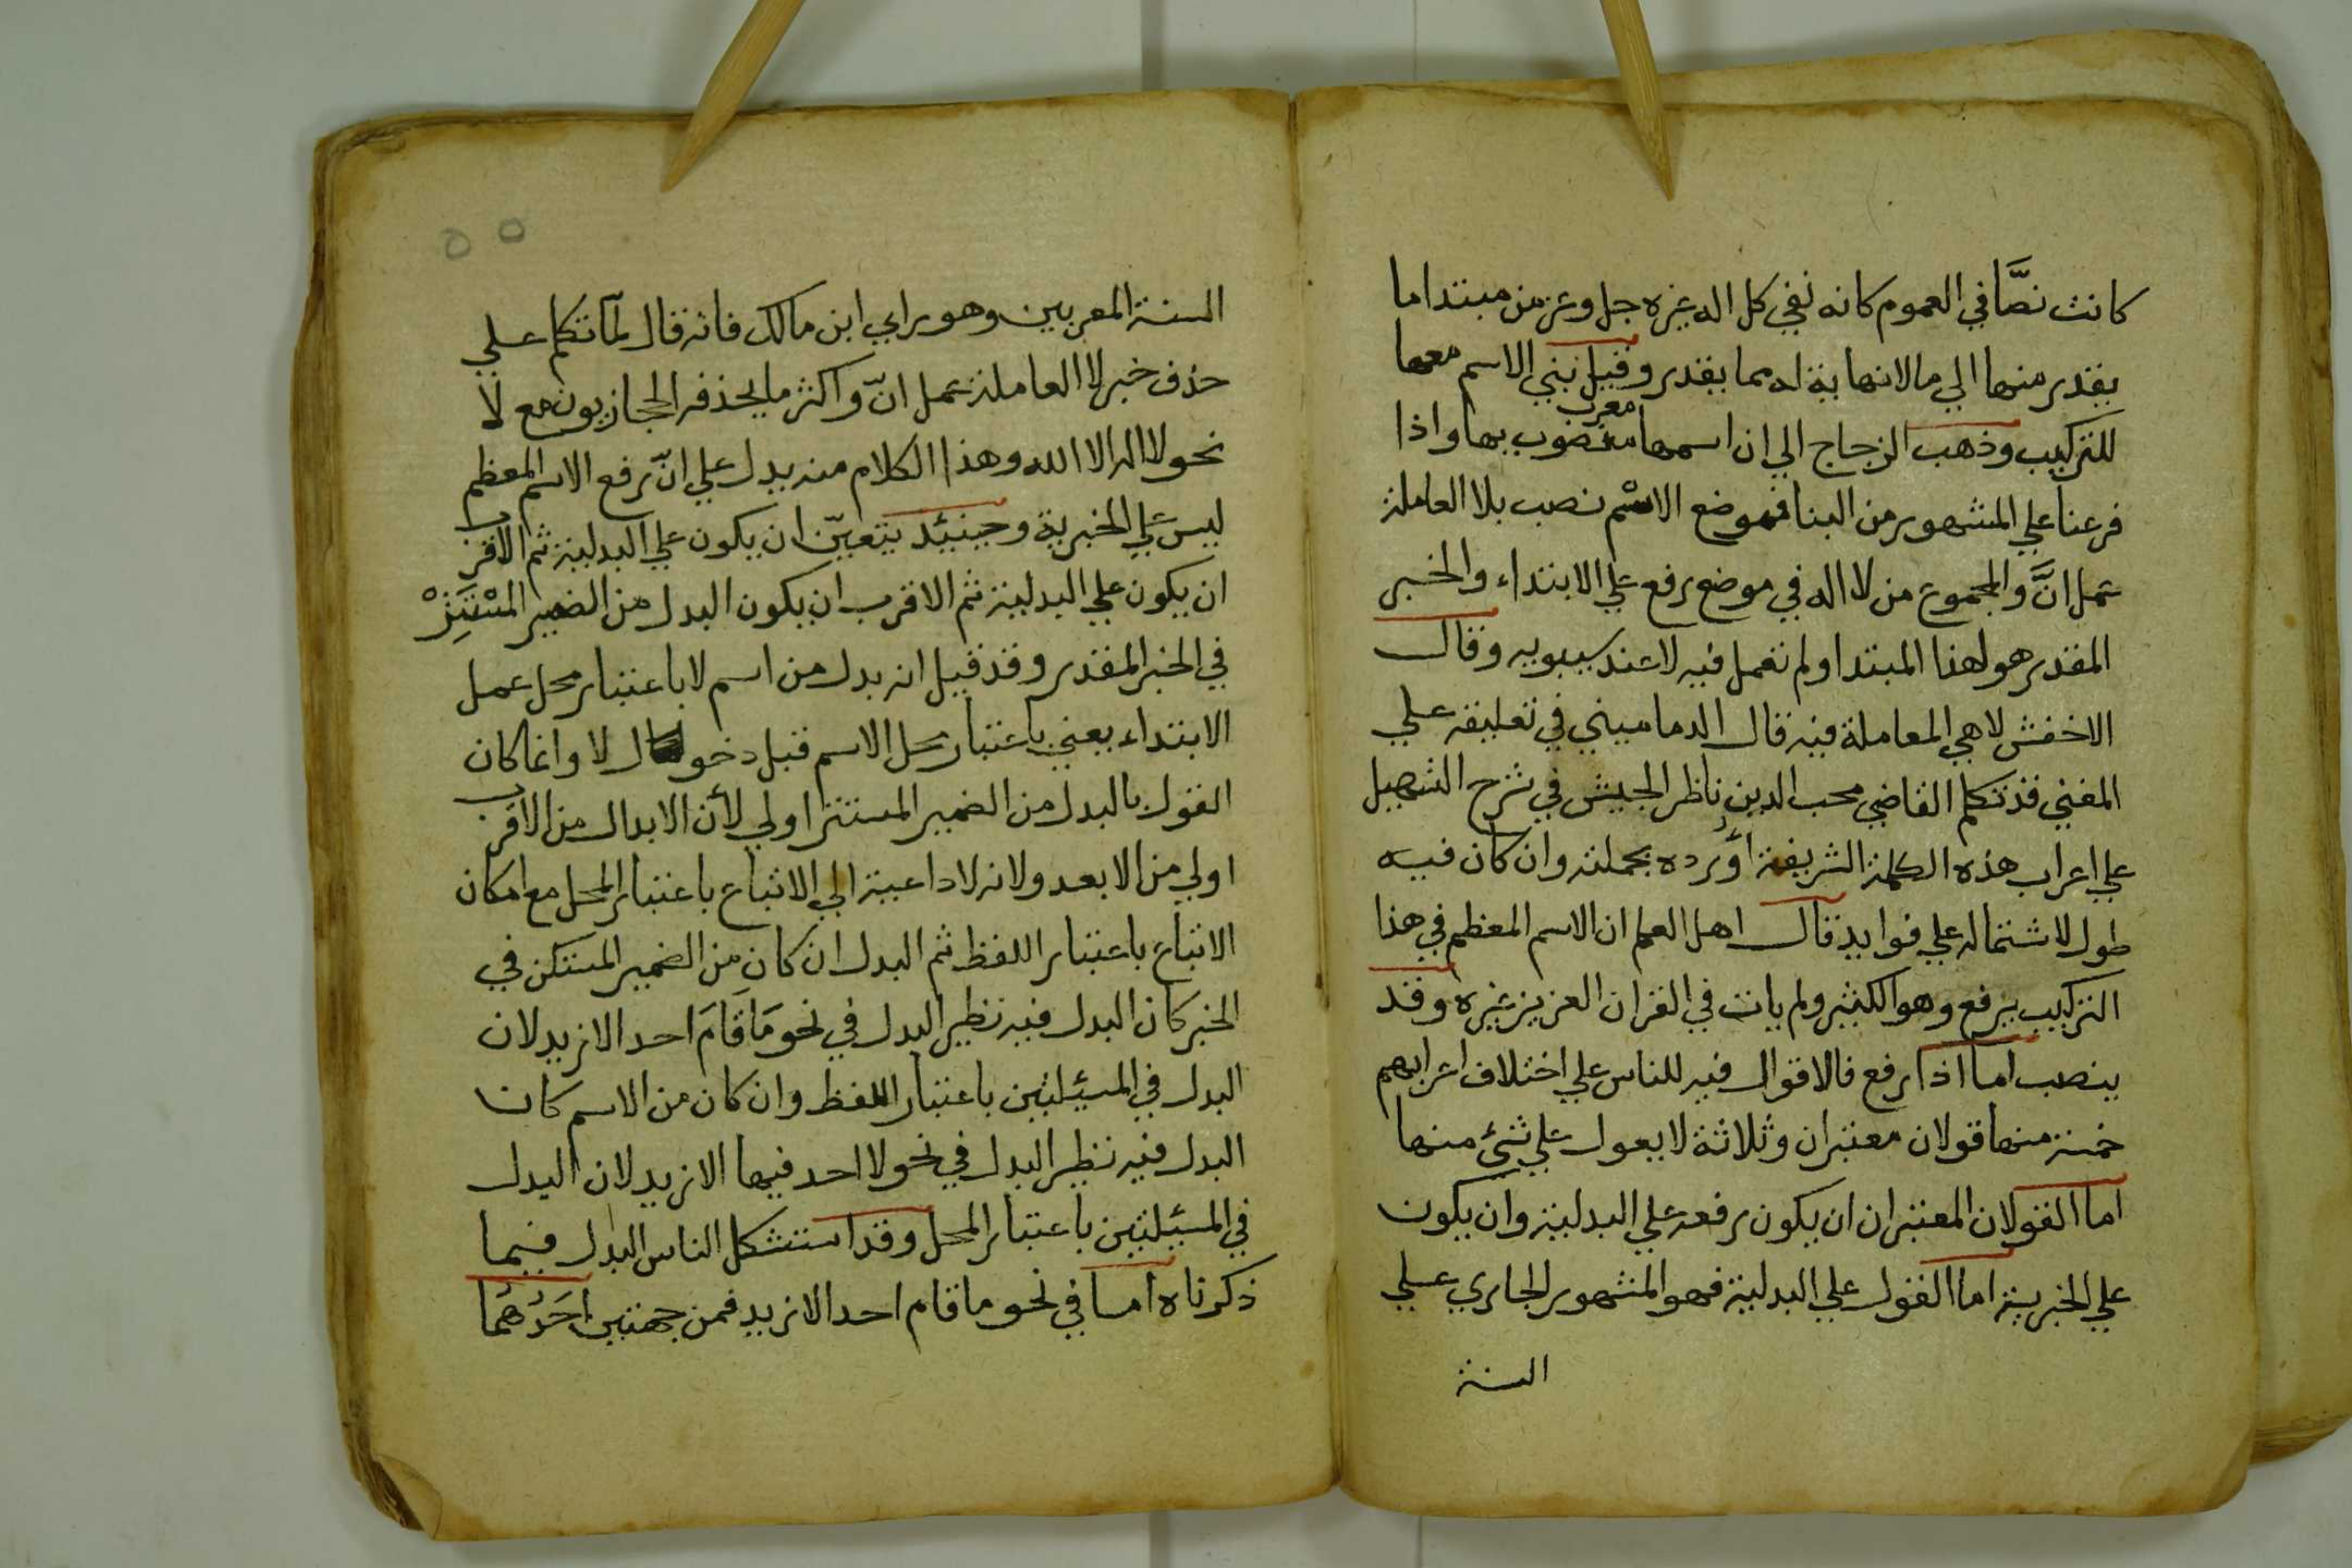 كانت نصَّا في العموم كانه نفي كل اله غيره جل وعز من مبتدا ما
يقدر منها الي مالانهاية له مما يقدر وقيل بني الاسم معها
للتركيب وذهب الزجاج الي ان اسمها معرب منصوب بها واذا
فرعنا علي المشهور من البنا فموضع الاسْم نصب بلا العاملة
عمل انَّ والمجموع من لا اله في موضع رفع علي الابتداء والخبر
المقدر هو لهذا المبتدا ولم تعمل فيه لا عند سيبويه وقال
الاخفش لا هي المعاملة فيه قال الدماميني في تعليقه علي
المغني قد تكلم القاضي محب الدين ناظر الجيش في شرح التسهيل
علي اعراب هذه الكلمة الشريفة أورده بجملته وان كان فيه
طول لاشتماله علي فوايد قال اهل العلم ان الاسم المعظم في هذا
التركيب يرفع وهو الكثير ولم يات في القران العزيز غيره وقد
ينصب اما اذا رفع فالاقوال فيه للناس علي اختلاف اعرابهم
خمسة منها قولان معتبران وثلاثة لا يعول علي شئ منها
اما القولان المعتبران ان يكون رفعه علي البدلية وان يكون
علي الخبرية اما القول علي البدلية فهو المشهور الجاري علي
السنة
٥٥
السنة المعربين وهو راي ابن مالك فانه قال لمّا تكلم علي
حذف خبر لا العاملة عمل انّ واكثر ما يحذفه الحجازيون مع لا
نحو لا اله الا الله وهذا الكلام منه يدل علي انّ رفع الاسم المعظم
ليس علي الخبرية وحينئد يتعيّن ان يكون علي البدلية ثم الاقرب
ان يكون علي البدلية ثم الاقرب ان يكون البدل من الضمير المسْتَتِرْ
في الخبر المقدر وقد قيل انه بدل من اسم لا باعتبار محل عمل
الابتداء يعني باعتبار محل الاسم قبل دخول لا وانما كان
القول بالبدل من الضمير المستتر اولي لأن الابدال من الاقرب
اولي من الابعد ولانه لا داعية الي الاتباع باعتبار المحل مع امكان
الاتباع باعتبار اللفظ ثم البدل ان كان مِن الضمير المستكن في
الخبر كان البدل فيه نظير البدل في نحو مَا قَامَ احد الا زيد لان
البدل في المسئلتين باعتبار اللفظ وان كان من الاسم كان
البدل فيه نظير البدل في نحو لا احد فيها الا زيد لان البدل
في المسئلتين باعتبار المحل وقد استشكل الناس البدل فيما
ذكرناه اما في نحو ما قام احد الا زيد فمن جهتين احَدُهُمَا